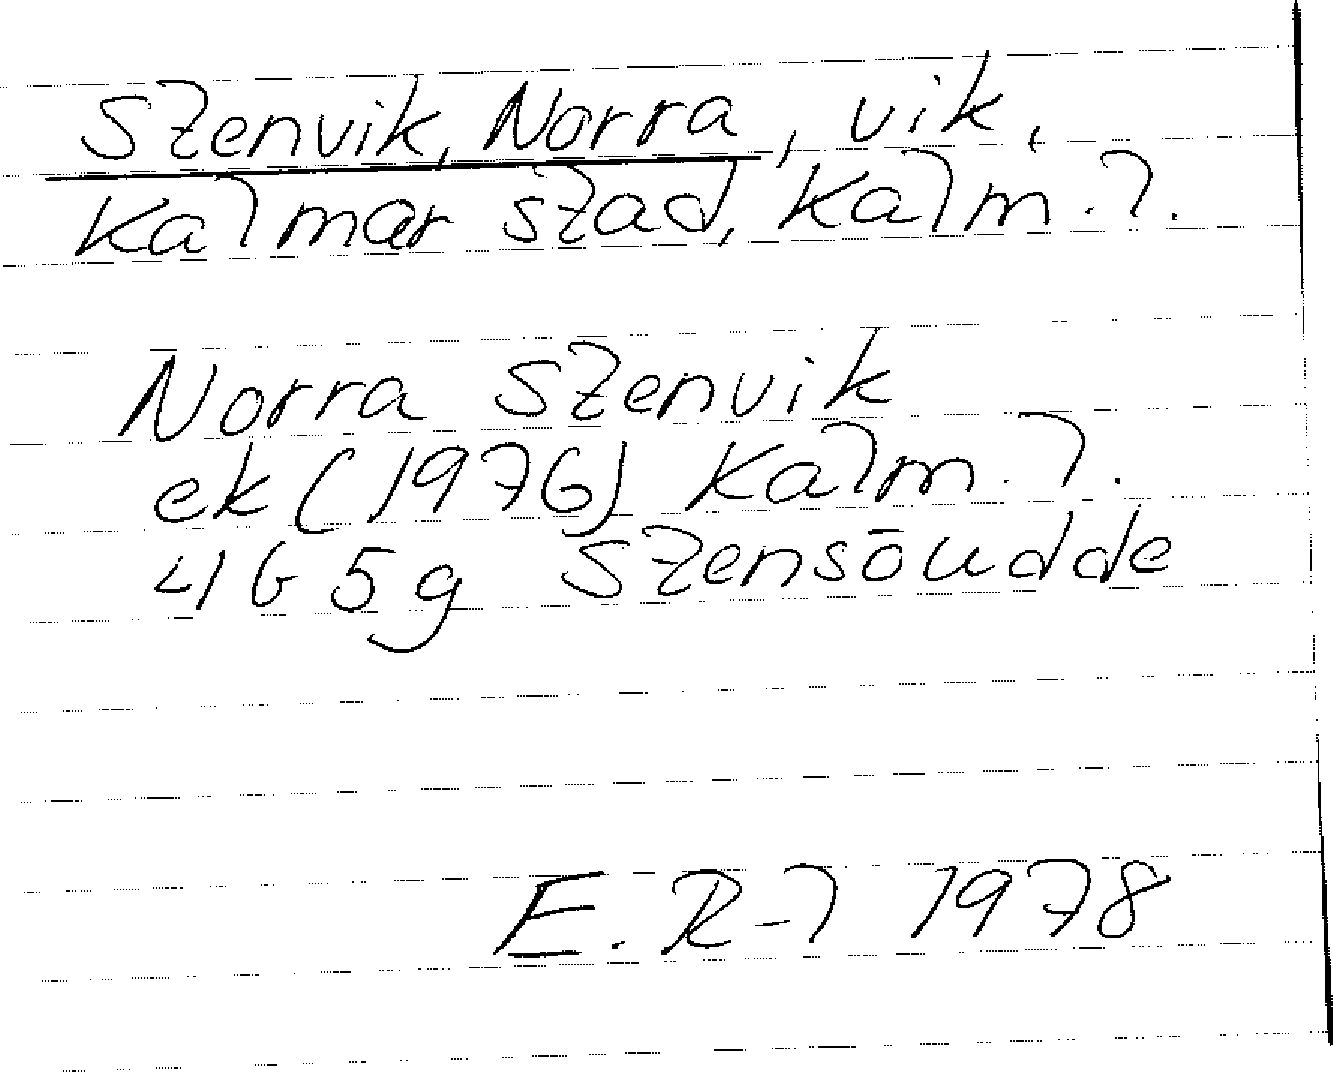 Stenvik, Norra, vik,
Kalmar stad, Kalm. l.
Norra Stenvik
ek (1976) Kalm. l.
4G 5g Stensöudde
E. R-l 1978